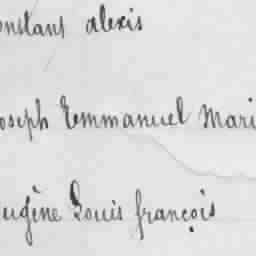 onstant alexis
oseph Emmanuel Mari
ugène Louis françois